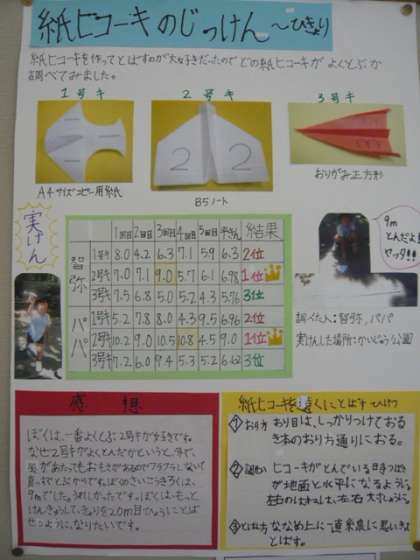 紙ヒコーキのじっけん〜ひきょり
紙ヒコーキを作ってとばすのが大好きだったので どの紙ヒコーキが よくとぶか
調べてみました。
1号キ 2号キ 3号キ
2 2
A4サイズコピー用紙
B5ノート
おりがみ正方形
実けん
1回目 2回目 3回目 4回目 5回目 平きん 結果
智弥
1号キ 8.0 4.2 6.3 7.1 5.9 6.3 2位
2号キ 7.0 7.1 9.0 5.7 6.1 6.98 1位
3号キ 7.5 6.8 5.0 5.2 4.3 5.76 3位
パパ
1号キ 5.2 7.8 8.0 4.3 9.5 6.96 2位
2号キ 10.2 9.0 10.5 10.8 4.5 9.0 1位
3号キ 7.2 6.0 9.4 5.3 5.2 6.62 3位
9m
とんだよ!!
ヤッタ!!
調べた人:智弥,パパ
実けんした場所:かいどう公園
感想
ぼくは、一番よくとぶ2号キが好きです。
なぜ2号キがよくとんだかというと、
9mでした。うれしかったです。ぼくは、もっと
けんきゅうして、きょりを20m目ひょうにとば
せるように、なりたいです。
紙ヒコーキを遠くにとばす
①おり方 おり目は、しっかりつけておる
本のおり方通りにおる。
② ヒコーキがとんでいる時つばさ
が地面と水平になるように。
③とばし方 ななめ上に一直線に思いきり
とばす。